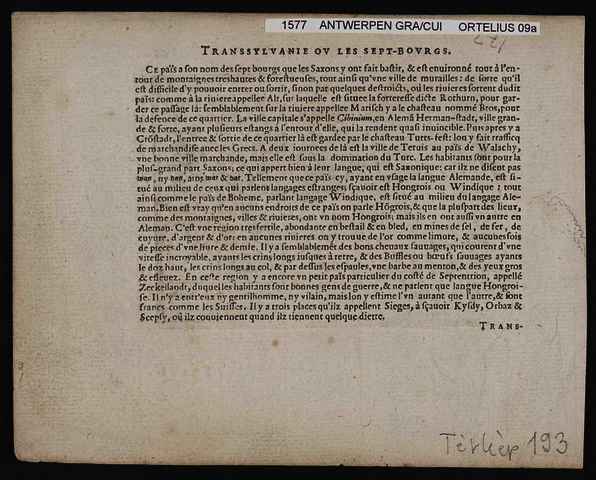 1577 ANTWERPEN GRA/CUI ORTELIUS 09a
TRANSSYLVANIE OV LES SEPT-BOVRGS.
CE païs a son nom des sept bourgs que les Saxons y ont fait bastir, & est environné tout à l'en-
tour de montaignes treshautes & forestueuses, tout ainsi qu'vne ville de murailles: de sorte qu'il
est difficile d'y pouuoir entrer ou sortir, sinon par quelques destroicts, où les riuieres sortent dudit
païs: comme à la riuiere appellee Alt, sur laquelle est situee la forteresse dicte Rothurn, pour gar-
der ce passage là: semblablement sur la riuiere appellee Marisch y a le chasteau nommé Bros, pour
la defence de ce quartier. La ville capitale s'appelle Cibinium, en Alemã Herman-stadt, ville gran-
de & forte, ayant plusieurs estangs à l'entour d'elle, qui la rendent quasi inuincible. Puis apres y a
Crõstadt, l'entree & sortie de ce quartier là est gardee par le chasteau Tutts-fest: lon y fait trafficq
de marchandise auec les Grecs. A deux iournees de là est la ville de Teruis au païs de Walachy,
vne bonne ville marchande, mais elle est sous la domination du Turc. Les habitants sont pour la
plus-grand part Saxons, ce qui appert bien à leur langue, qui est Saxonique: car ilz ne disent pas
ny ains & Tellement que ce païs-cy, ayant en vsage la langue Alemande, est si-
tué au milieu de ceux qui parlent langages estranges; sçauoir est Hongrois ou Windique; tout
ainsi comme le païs de Boheme, parlant langage Windique, est situé au milieu du langage Ale-
man. Bien est vray qu'en aucuns endroits de ce païs on parle Hõgrois, & que la pluspart des lieux,
comme des montaignes, villes & riuieres, ont vn nom Hongrois; mais ils en ont aussi vn autre en
Aleman. C'est vne region tresfertile, abondante en bestail & en bled, en mines de sel, de fer, de
cuyure, d'argent & d'or: en aucunes riuieres on y trouue de l'or comme limore, & aucunesfois
de pieces d'vne liure & demie. Il y a semblablemẽt des bons cheuaux sauuages, qui courent d'vne
vitesse incroyable, ayants les crins longs iusques à terre, & des Buffles ou bœufs sauuages ayants
le doz haut, les crins longs au col, & par dessus les espaules, vne barbe au menton, & des yeux gros
& esleuez. En ceste region y a encore vn petit païs particulier du costé de Septentrion, appellé
Zeckellandt, duquel les habitants sont bonnes gens de guerre, & ne parlent que langue Hongroi-
se. Il n'y a entr'eux ny gentilhomme, ny vilain, mais lon y estime l'vn autant que l'autre, & sont
francs comme les Suisses. Il y a trois places qu'ilz appellent Sieges, à sçauoir Kysdy, Orbaz &
Scepsy, où ilz conuiennent quand ilz tiennent quelque diette.
TRANS-
193